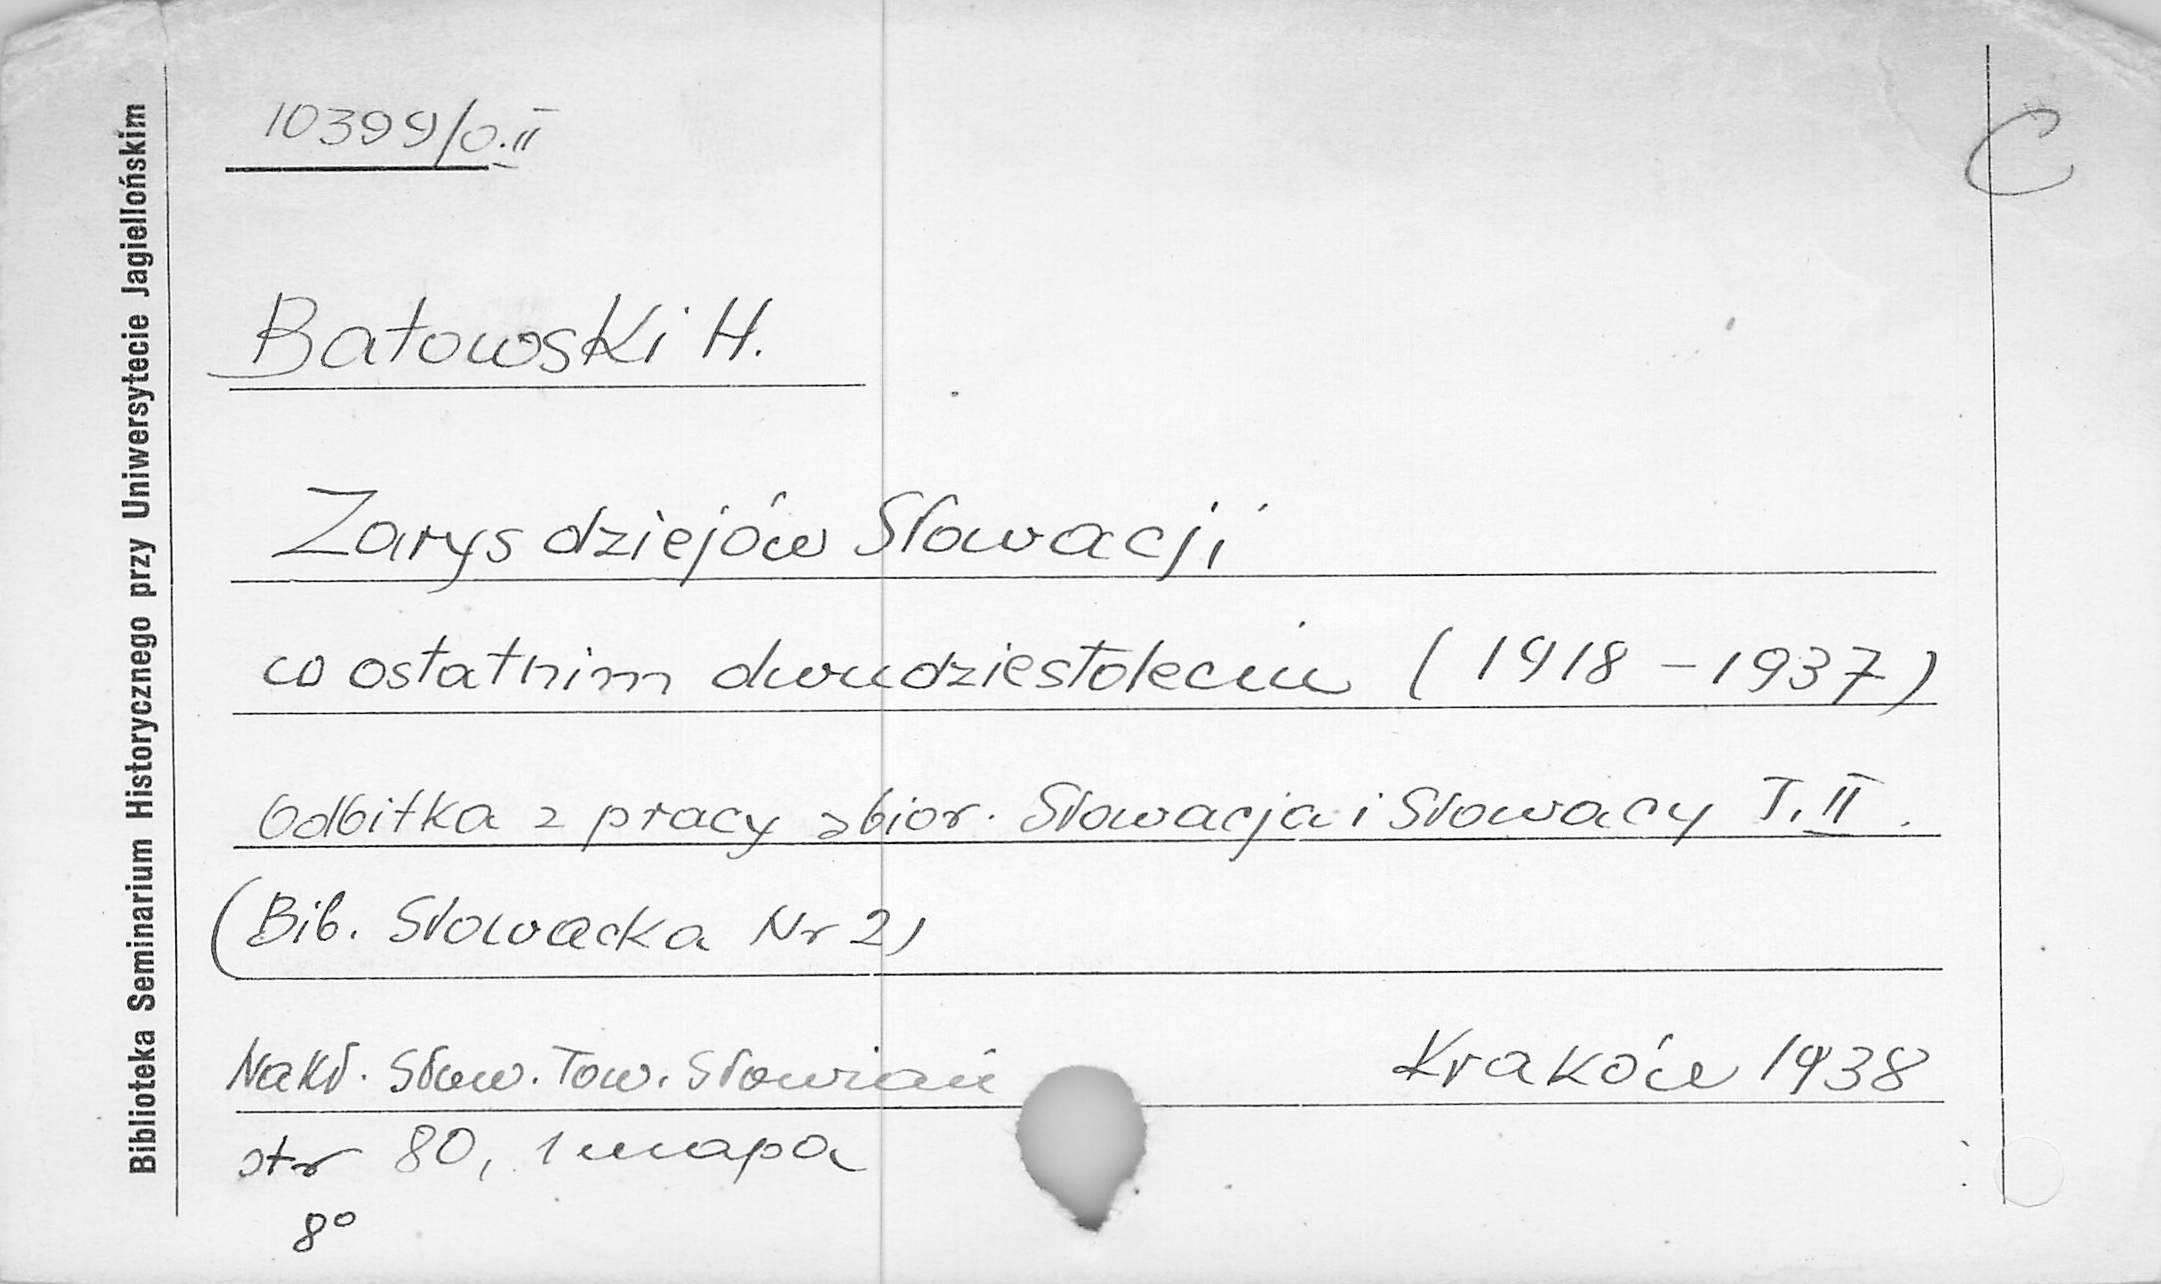 10399/O.II
C
Batowski H.
Zarys dziejów Słowacji
w ostatnim dwudziestoleciu (1918-1937)
Odbitka z pracy zbior. Słowacja i Słowacy T. II.
(Bib. Słowacka Nr 2)
Nakł. Słow. Tow. Słowiań Kraków 1938
str 80, 1 mapa
8°
Biblioteka Seminarium Historycznego przy Uniwersytecie Jagiellońskim